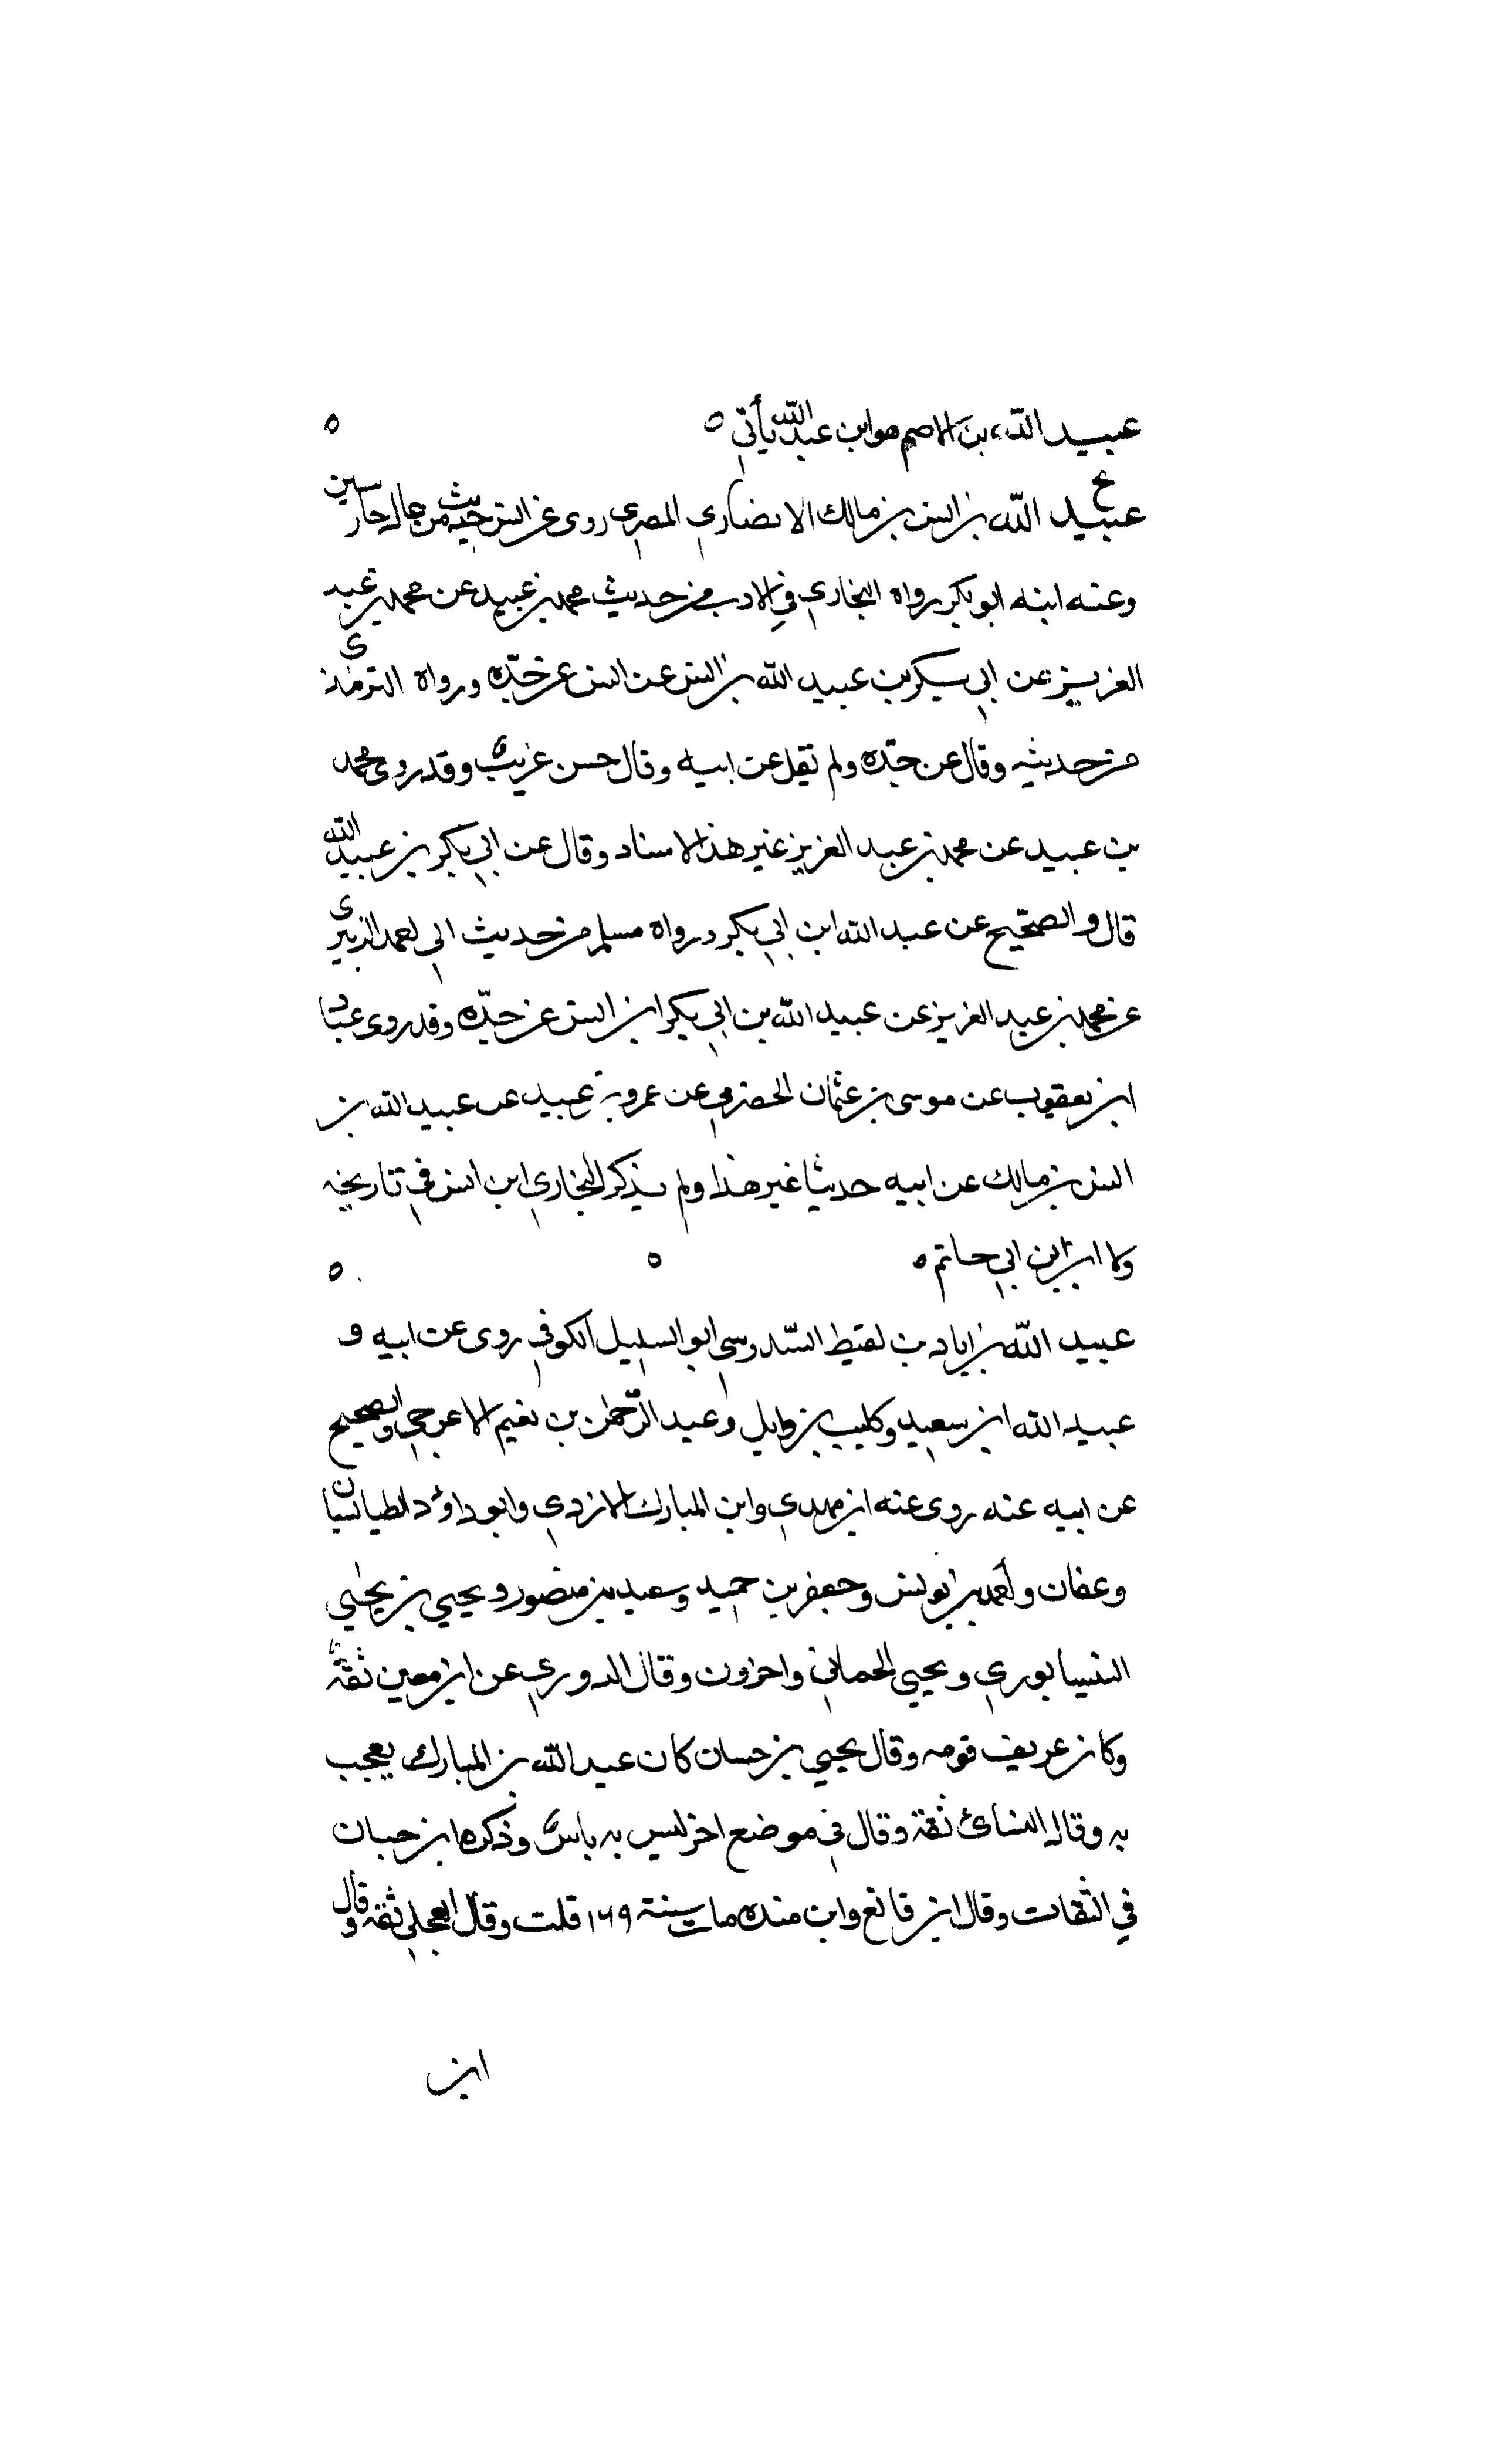 عبيد الله بن الاصم هو ابن عبد الله يأتي ه ه
عبيد الله بن انس بن مالك الانصاري المصري روى عن انس حديث من عال جاريتين
وعنه ابنه ابو بكر رواه البخاري في الادب من حديث محمد بن عبيد عن محمد بن عبد
العزيز عن ابي بكر بن عبيد الله بن انس عن انس عن جدّه ورواه الترمذى
من حديثه وقال عن جدّه ولم يقل عن ابيه وقال حسن غريب وقد روى محمد
بن عبيد عن محمد بن عبد العزيز غير هذا الاسناد وقال عن ابي بكر بن عبيد الله
قال والصحيح عن عبد الله ابن ابي بكر ورواه مسلم من حديث ابي احمد الزبيرى
عن محمد بن عبد العزيز عن عبيد الله بن ابي بكر ابن انس عن جدّه وقد روى عباد
ابن يعقوب عن موسى بن عثمان الحضرمي عن عمرو بن عبيد عن عبيد الله بن
انس بن مالك عن ابيه حديثا غير هذا ولم يذكر البخاري ابن انس في تاريخه
ولا ابن ابي حاتم ه ه ه
عبيد الله بن اياد بن لقيط السّدوسي ابو السليل الكوفي روى عن ابيه و
عبيد الله ابن سعيد وكليب بن وايل وعبد الرّحمن بن نعيم الاعرجي والصحيح
عن ابيه عنه روى عنه ابن مهدي وابن المبارك الازدي وابو داؤد الطيالسيان
وعفان واحمد بن يونس وجعفر بن حميد وسعيد بن منصور ويحيي بن يحيي
النيسابوري ويحيي الحماني واخرون وقال الدوري عن ابن معين ثقة
وكان عريف قومه وقال يحيي بن حسان كان عبد الله بن المبارك يعجب
به وقال النسائ ثقة وقال في موضع اخر ليس به باس وذكره ابن حبان
في الثقات وقال ابن قانع وابن منده مات سنة ١٦٩ قلت وقال العجلي ثقة وقال
ابن